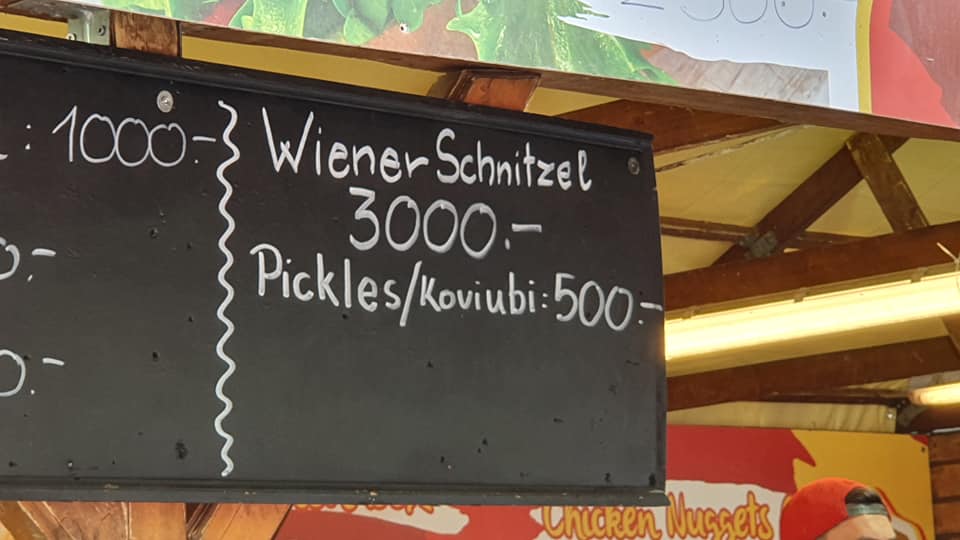 2500.
: 1000.-
0.-
0.-
Wiener Schnitzel
3000.-
Pickles/Koviubi: 500.-
Chicken Nuggets